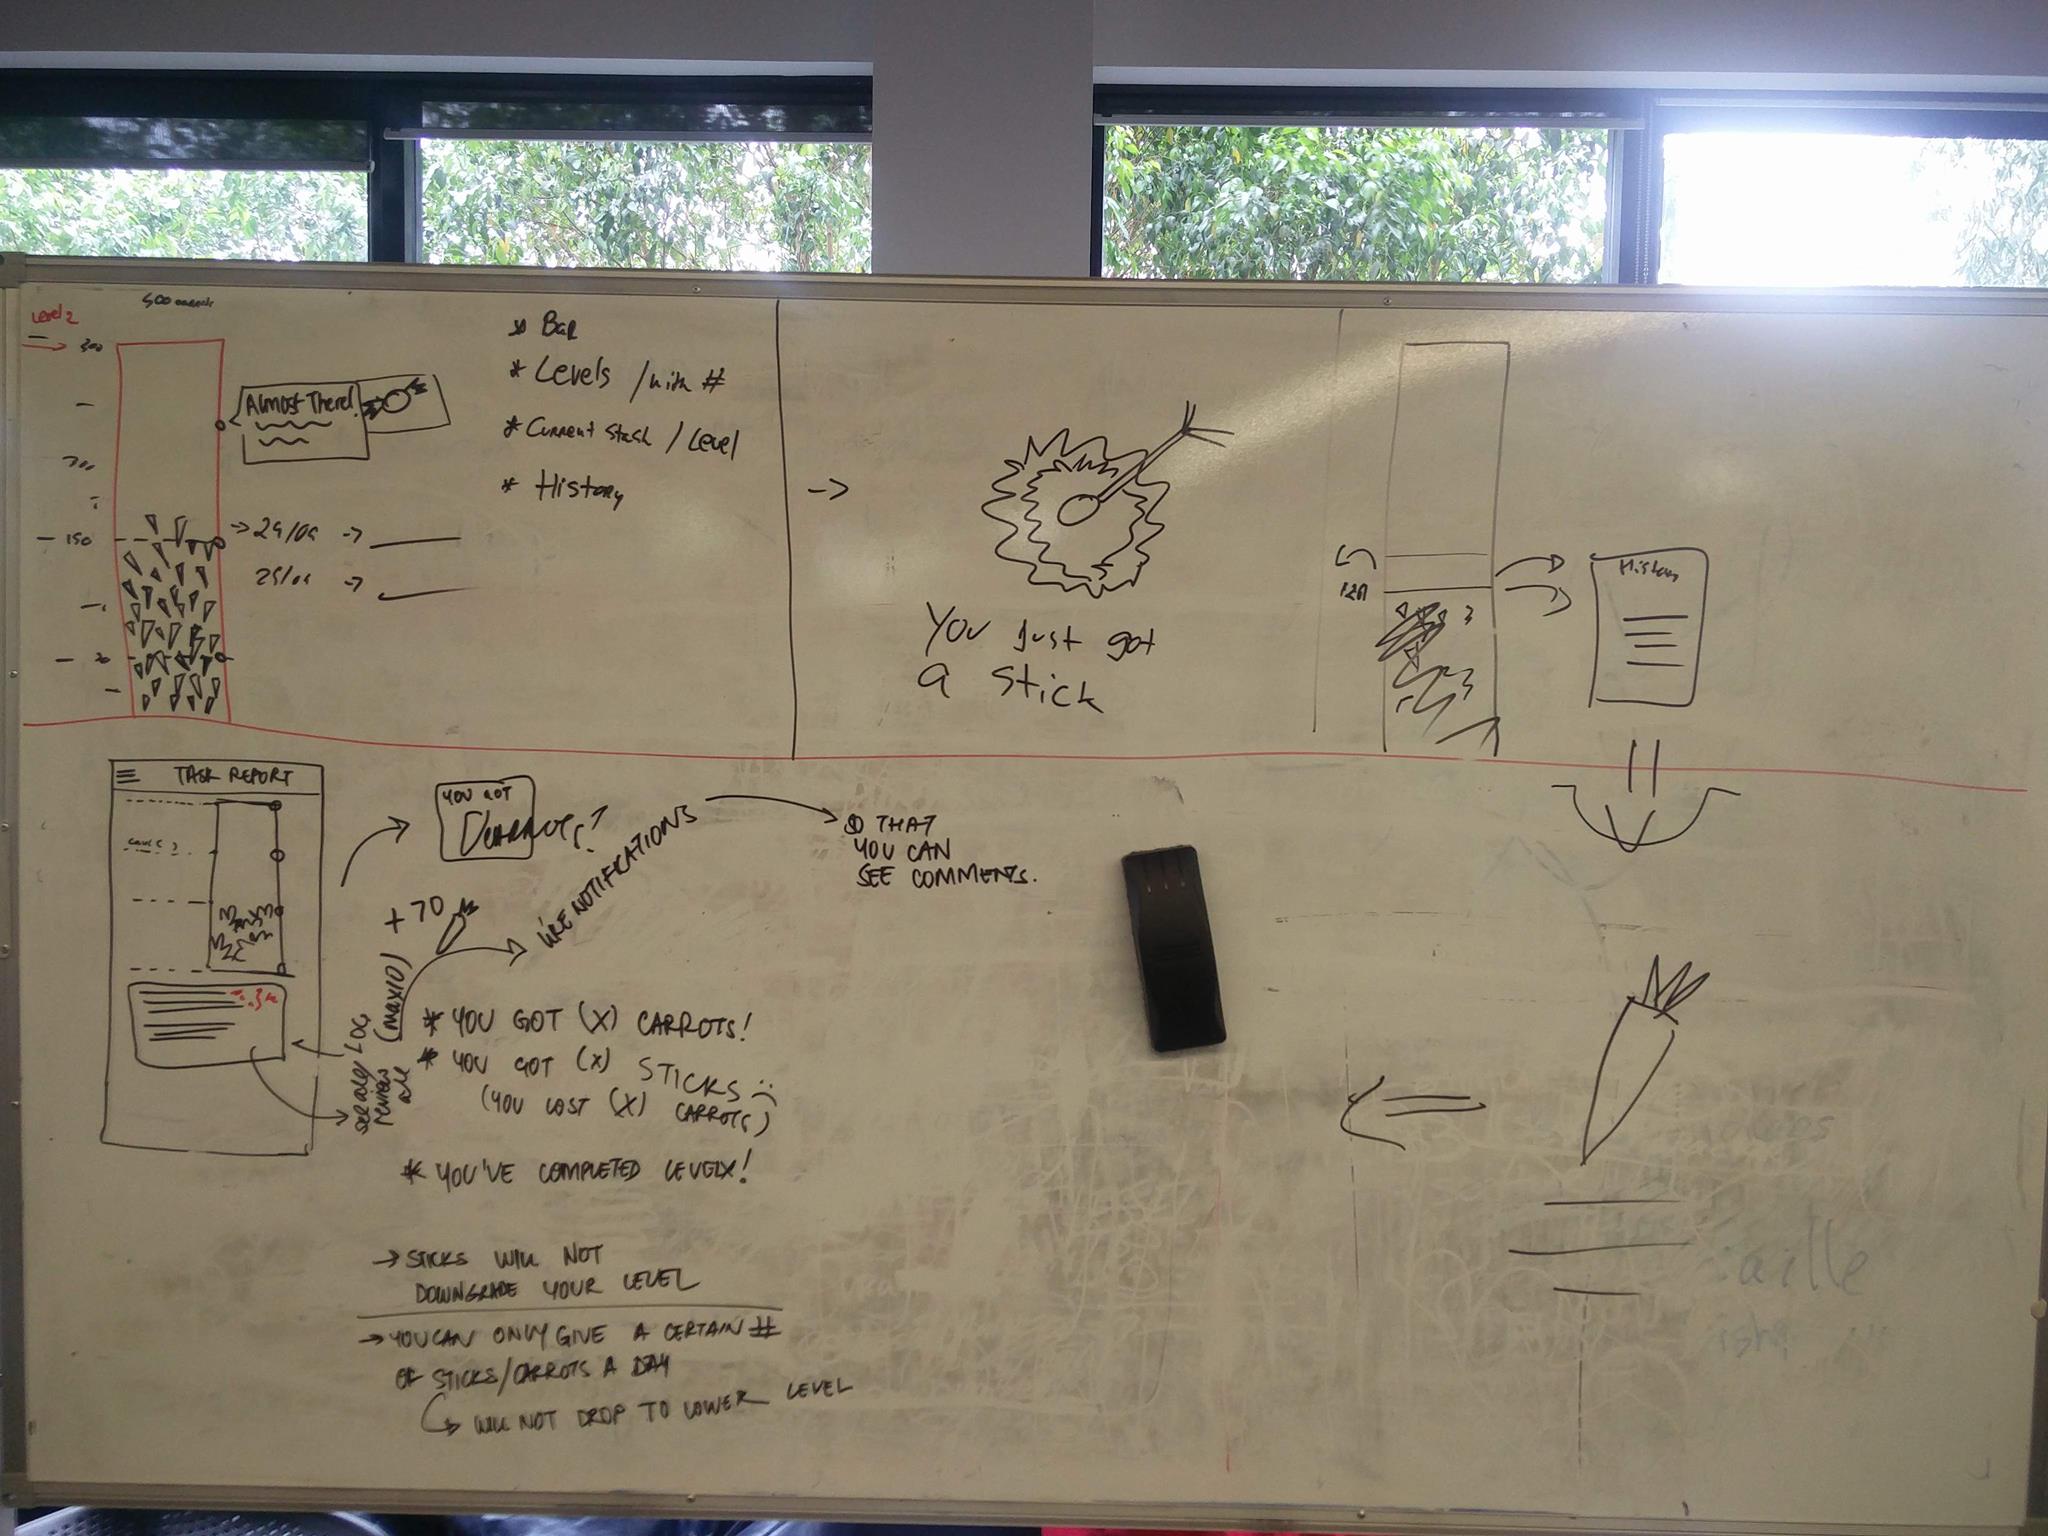 Level 2
500 carrots
300
Almost There!
* Bar
* Levels / with #
* Current Stash / Level
* History
150
You just got
a stick
History
TASK REPORT
YOU GOT
CARROTS!
+70
LIKE NOTIFICATIONS
SO THAT
YOU CAN
SEE COMMENTS.
(MAX 10)
* YOU GOT (X) CARROTS!
* YOU GOT (X) STICKS :(
(YOU LOST (X) CARROTS)
* YOU'VE COMPLETED LEVEL X!
→ STICKS WILL NOT
DOWNGRADE YOUR LEVEL
→ YOU CAN ONLY GIVE A CERTAIN #
OF STICKS/CARROTS A DAY
WILL NOT DROP TO LOWER LEVEL